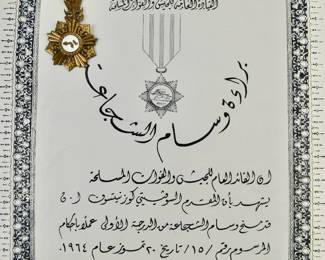 القيادة العامة للجيش والقوات المسلحة
براءة وسام الشجاعة
ان القائد العام للجيش والقوات المسلحة
يشهد بأن المقدم السوفيتي كوزنيتسوف ا. ن
قد منح وسام الشجاعة من الدرجة الأولى عملاً باحكام
المرسوم رقم /١٥/ تاريخ ٢٠ تموز عام ١٩٦٤.